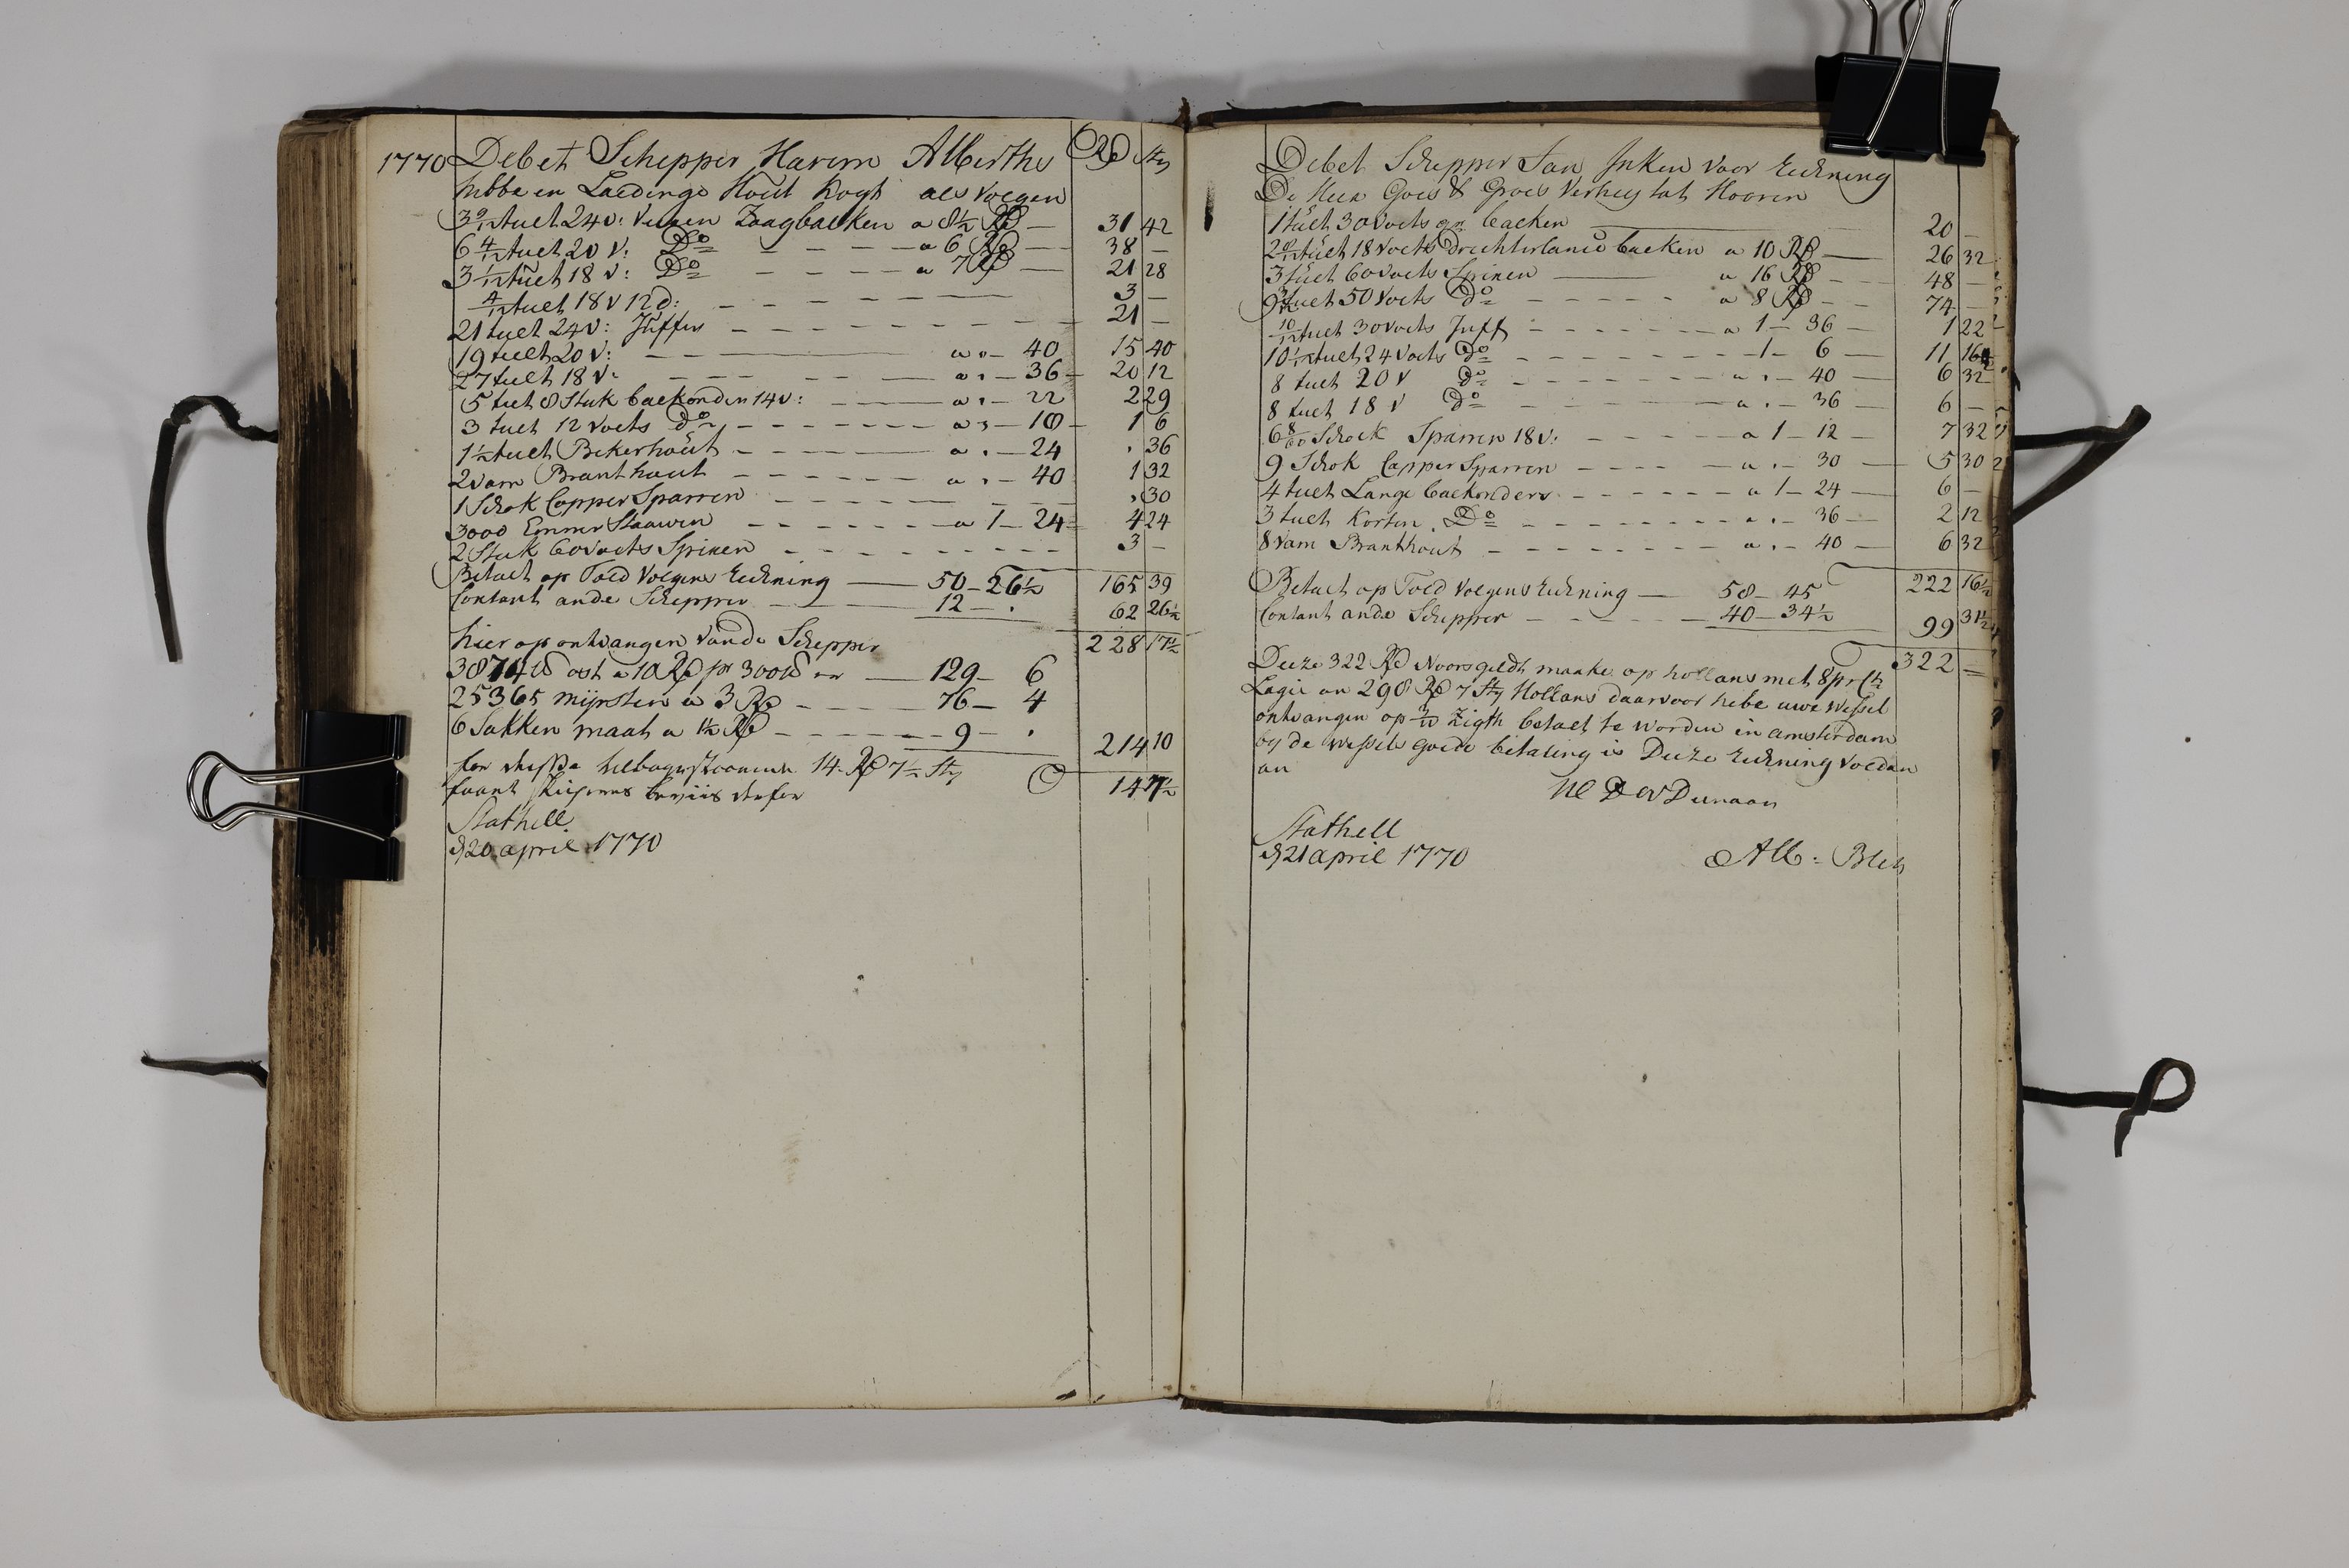 1770 Debet Schepper Harem Alberths Rd sty
hebbe en Laedinge Hout kogt als volgen
3 9/12 tuelt 24 v: Zaagbaelken a 8½ Rd — 31 42
6 4/12 tuelt 20 v: Do — a 6 Rd — 38 —
3 1/12 tuelt 18 v: Do — a 7 Rd — 21 28
4/12 tuelt 18 v 12 d: — 3 —
21 tuelt 24 v: Juffers — 21 —
19 tuelt 20 v: — a " — 40 15 40
27 tuelt 18 v: — a " — 36 — 20 12
5 tuelt 8 Stuk baekonden 14 v: — a " — 22 2 29
3 tuelt 12 voets do — a " — 18 — 1 6
1½ tuelt Bekerhout — a " — 24 " 36
2 vam Branthout — a " — 40 1 32
1 Schok Copper Sparren — " 30
3000 Emmer Staawen — a 1 — 24 4 24
2 Stuk 60 voets Spieren — 3 —
165 39
Betaelt op Told Volgens Reckning — 50 — 26½
Contant ande Schepper — 12 — " 62 26½
228 17½
hier op ontvangen vande Schepper
a 10 Rd pr 300 — 129 — 6
25365 a 3 Rd — 76 — 4
6 Sakken maat a 1½ Rd — 9 — "
214 10
14 Rd 7½ Sty
14 7½
Stathell
d 20 april 1770
Debet Schepper Jan Inken Voor Reckning
De Heer Goes & Groes Verheys tot Hooren
1 tuelt 30 voets gr: baelken — 20 —
2 8/12 tuelt 18 voets Drechterlance baelken a 10 Rd — 26 32
3 tuelt 60 voets Spieren — a 16 Rd — 48 —
9 3/12 tuelt 50 voets Do — a 8 Rd — 74 —
10/12 tuelt 30 voets Juff — a 1 — 36 — 1 22
10 1/12 tuelt 24 voets Do — 1 — 6 — 11 16½
8 tuelt 20 v Do — a " — 40 — 6 32
8 tuelt 18 v Do — a " — 36 — 6 —
6 8/60 Schock Sparren 18 v: — a 1 — 12 — 7 32
9 Schok Copper Sparren — a " — 30 — 5 30
4 tuelt Lange baekonders — a 1 — 24 — 6 —
3 tuelt Korten Do — a " — 36 — 2 12
8 vam Branthout — a " — 40 — 6 32
222 16½
Betaelt op Told Volgens Reckning — 58 — 45
Contant ande Schepper — 40 — 34½ 99 31½
322 =
Deeze 322 Rd Noorsgeldt maake op hollans met 8 pr Ct
Lagie an 298 Rd 7 Sty Hollans daarvoor hebe uwe wessel
ontvangen op zigth betaelt te worden in amsterdam
by de wessels goede betaling is Deeze Reckning voldan
an
Stathell
d 21 april 1770